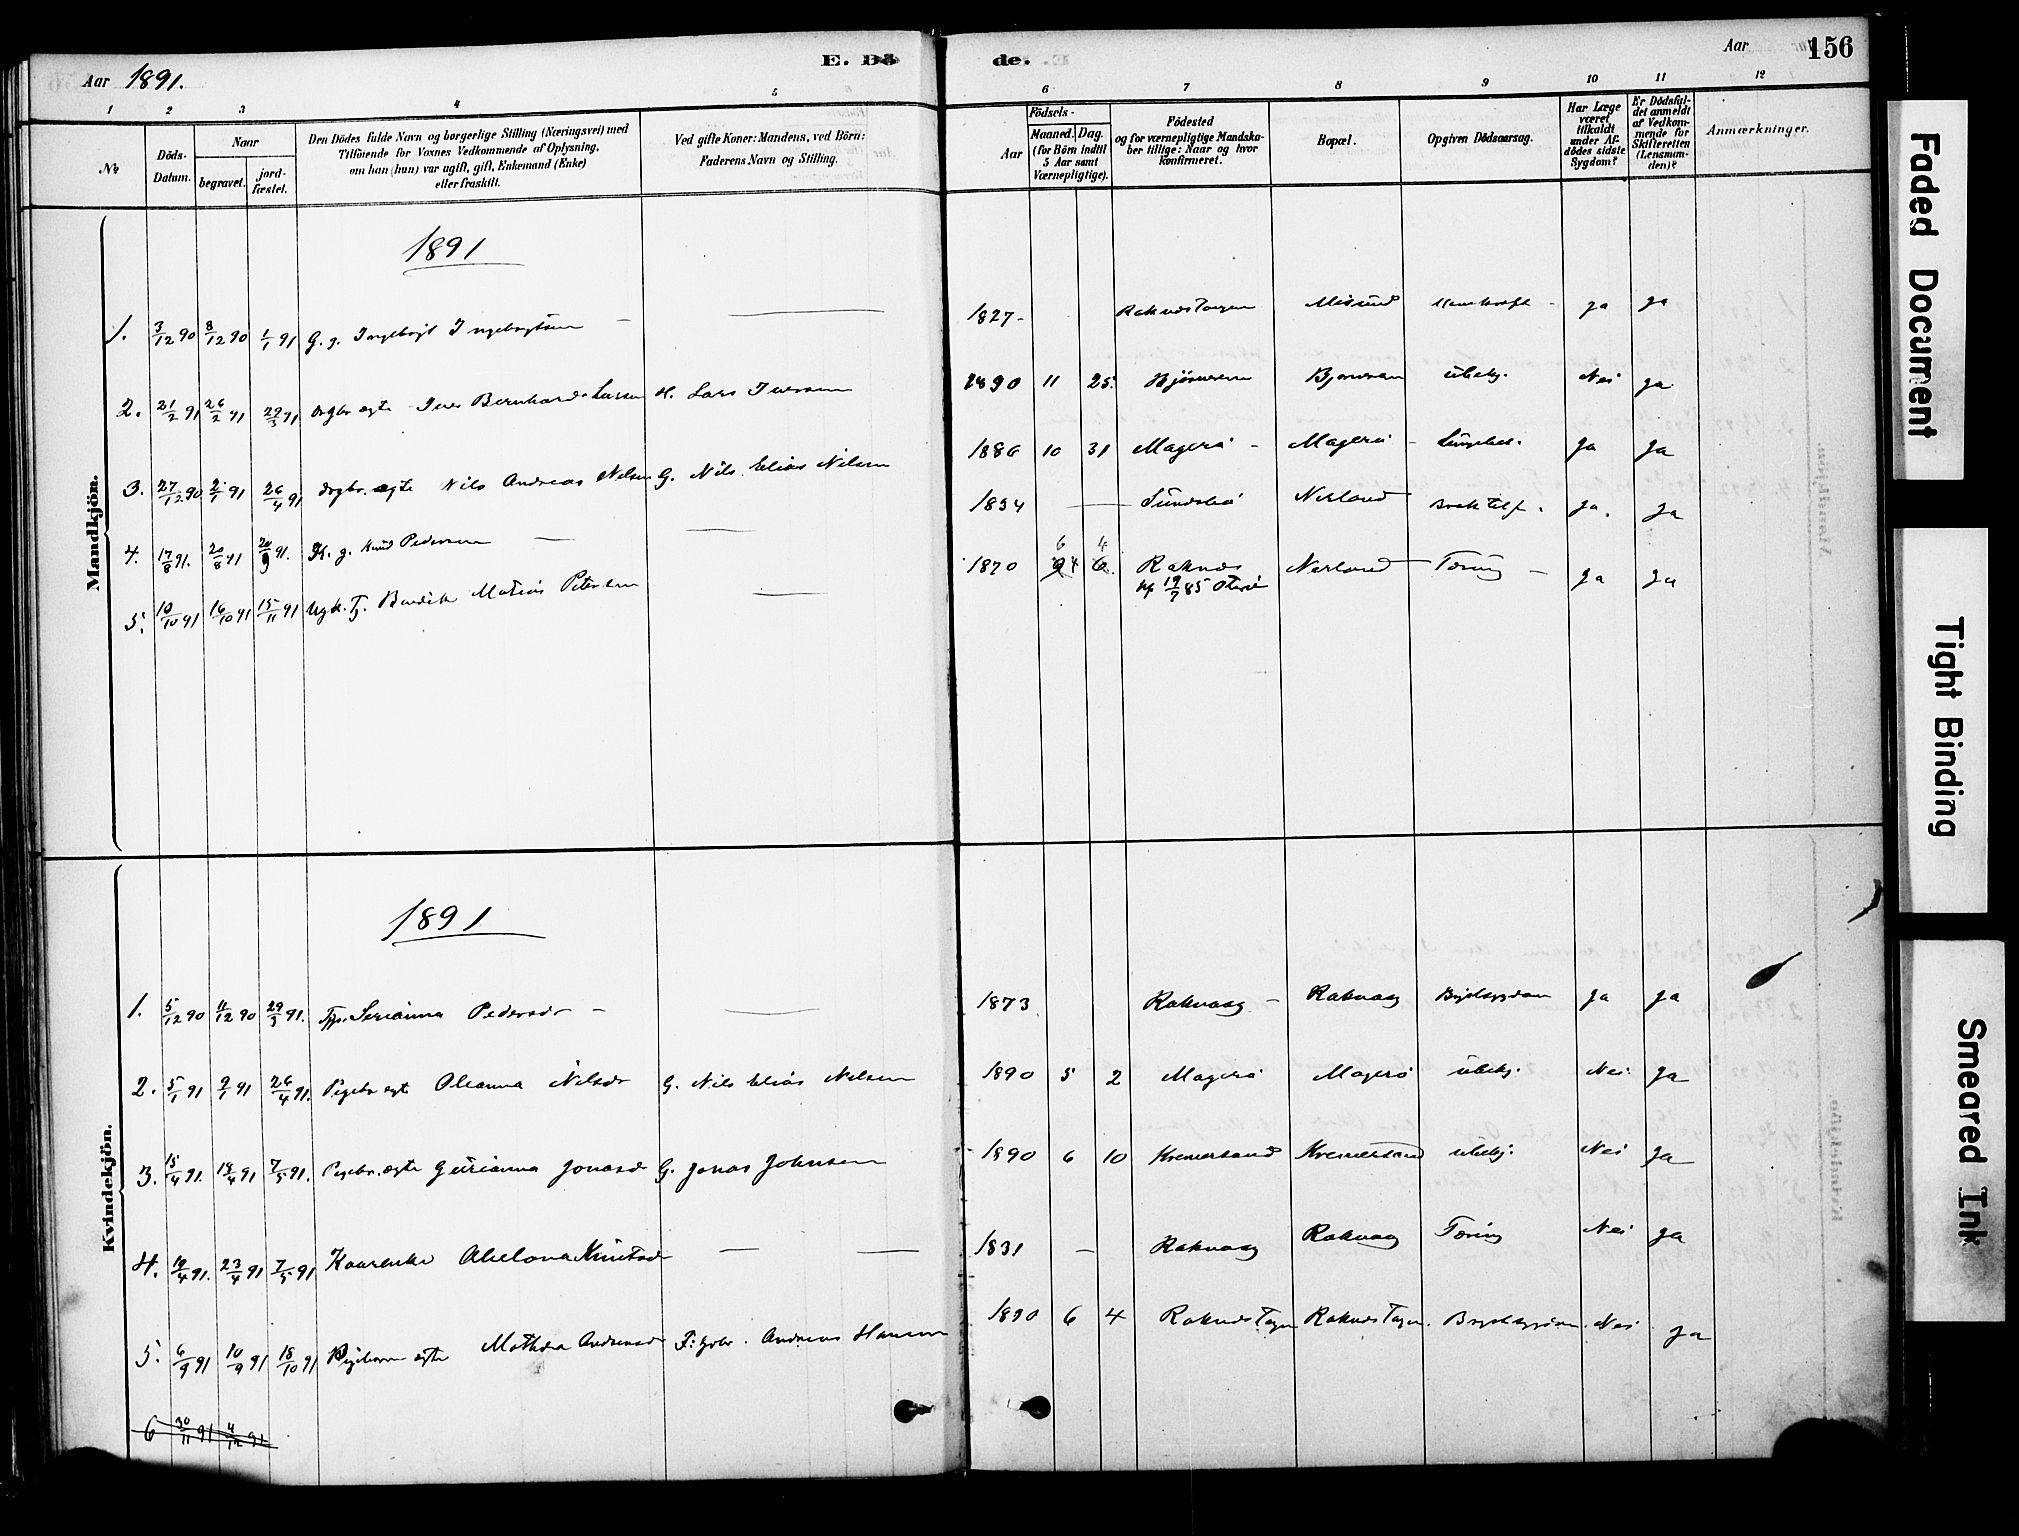 Aar 1891.
E. Döde.
Aar 156
1 2 3 4 5 6 7 8 9 10 11 12
No.
Döds-Datum.
Naar
begravet.
jord-fæstet.
Den Dödes fulde Navn og borgerlige Stilling (Næringsvei) med
Tilföiende for Voxnes Vedkommende af Oplysning,
om han (hun) var ugift, gift, Enkemand (Enke)
eller fraskilt.
Ved gifte Koner: Mandens, ved Börn:
Faderens Navn og Stilling.
Födsels-
Aar
Maaned. Dag.
(for Börn indtil
5 Aar samt
Værnepligtige).
Födested
og for værnepligtige Mandska-
ber tillige: Naar og hvor
Konfirmeret.
Bopæl.
Opgiven Dödsaarsag.
Har Læge
været
tilkaldt
under Af-
dödes sidste
Sygdom?
Er Dödsfal-
det anmeldt
af Vedkom-
mende for
Skifteretten
(Lensman-
den)?
Anmærkninger.
Mandkjön.
1891
1. 3/12 90 8/12 90 1/1 91 G. g. Ingebrigt Ingebrigtsen — 1827 - Raknestangen Misund ja ja
2. 21/2 91 26/2 91 29/3 91 drgbr ægte Iver Bernhard Larsen Lars Iversen 1890 11 25. Bjørneren Bjørneren ubekj. Nei ja
3. 27/12 90 2/1 91 26/4 91 drgbr. ægte Nils Andreas Nilsen G. Nils Elias Nilsen 1886 10 31 Magerö - Magerö - ja ja
4. 17/8 91. 20/8 91 20/9 91. K. g. Knud Pedersen — 1834 — Sundsbö Nerland ja. ja
5. 10/10 91 16/10 91 15/11 91 Ugk. Tj. Matias Petersen — 1870 6 4 Raknes Nerland Tæring — ja ja
19/7 85 Oterö
Kvindekjön.
1891
1. 5/12 90 11/12 90 29/3 91. Serianna Pedersdr — 1873 Rakvaag — Rakvaag Brystsygdom ja ja
2. 5/1 91 9/1 91 26/4 91. Pigebr ægt Oleanna Nilsdr G. Nils Elias Nilsen 1890 5 2 Magerö Magerö ubekj. Nei ja
3. 15/4 91. 18/4 91 7/5 91. Pigebr. ægte Gurianna Jonasd G. Jonas Johnsen 1890 6 10 Kremersand Kremersand ubekj. Nei ja
4. 19/4 91. 23/4 91 7/5 91 Kaarenke Abelona Knutsdr — 1831 — Rakvaag Rakvaag Tæring Nei ja
5. 6/9 91 10/9 91 18/10 91 Pigebarn ægte Mathea Andreasdr F: Andreas Hansen 1890 6 4 Raknestangen Raknestangen. Brystsygdom Nei ja
6 30/11 91 4/12 91
Faded Document
Tight Binding
Smeared Ink